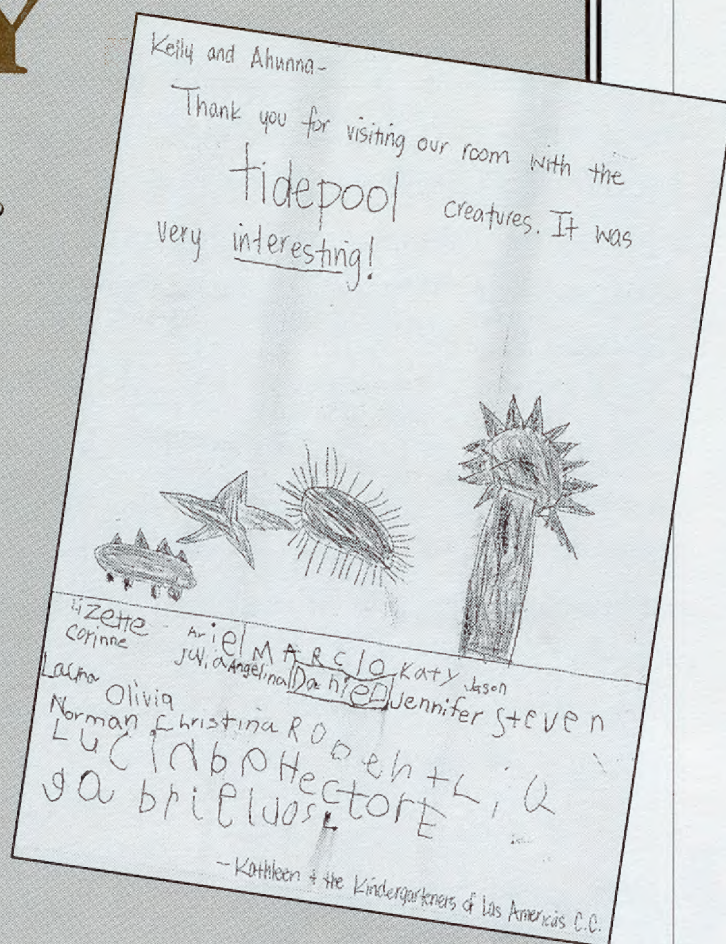 Y
Kelly and Ahunna-
Thank you for visiting our room with the
tidepool creatures. It was
very interesting!
Lizette Ariel MARCJO Katy Jason
Corinne Julia Angelina Daniel Jennifer Steven
Laura Olivia
Norman Christina
Hector
gabriel
-Kathleen + the Kindergarteners of Las Americas C.C.